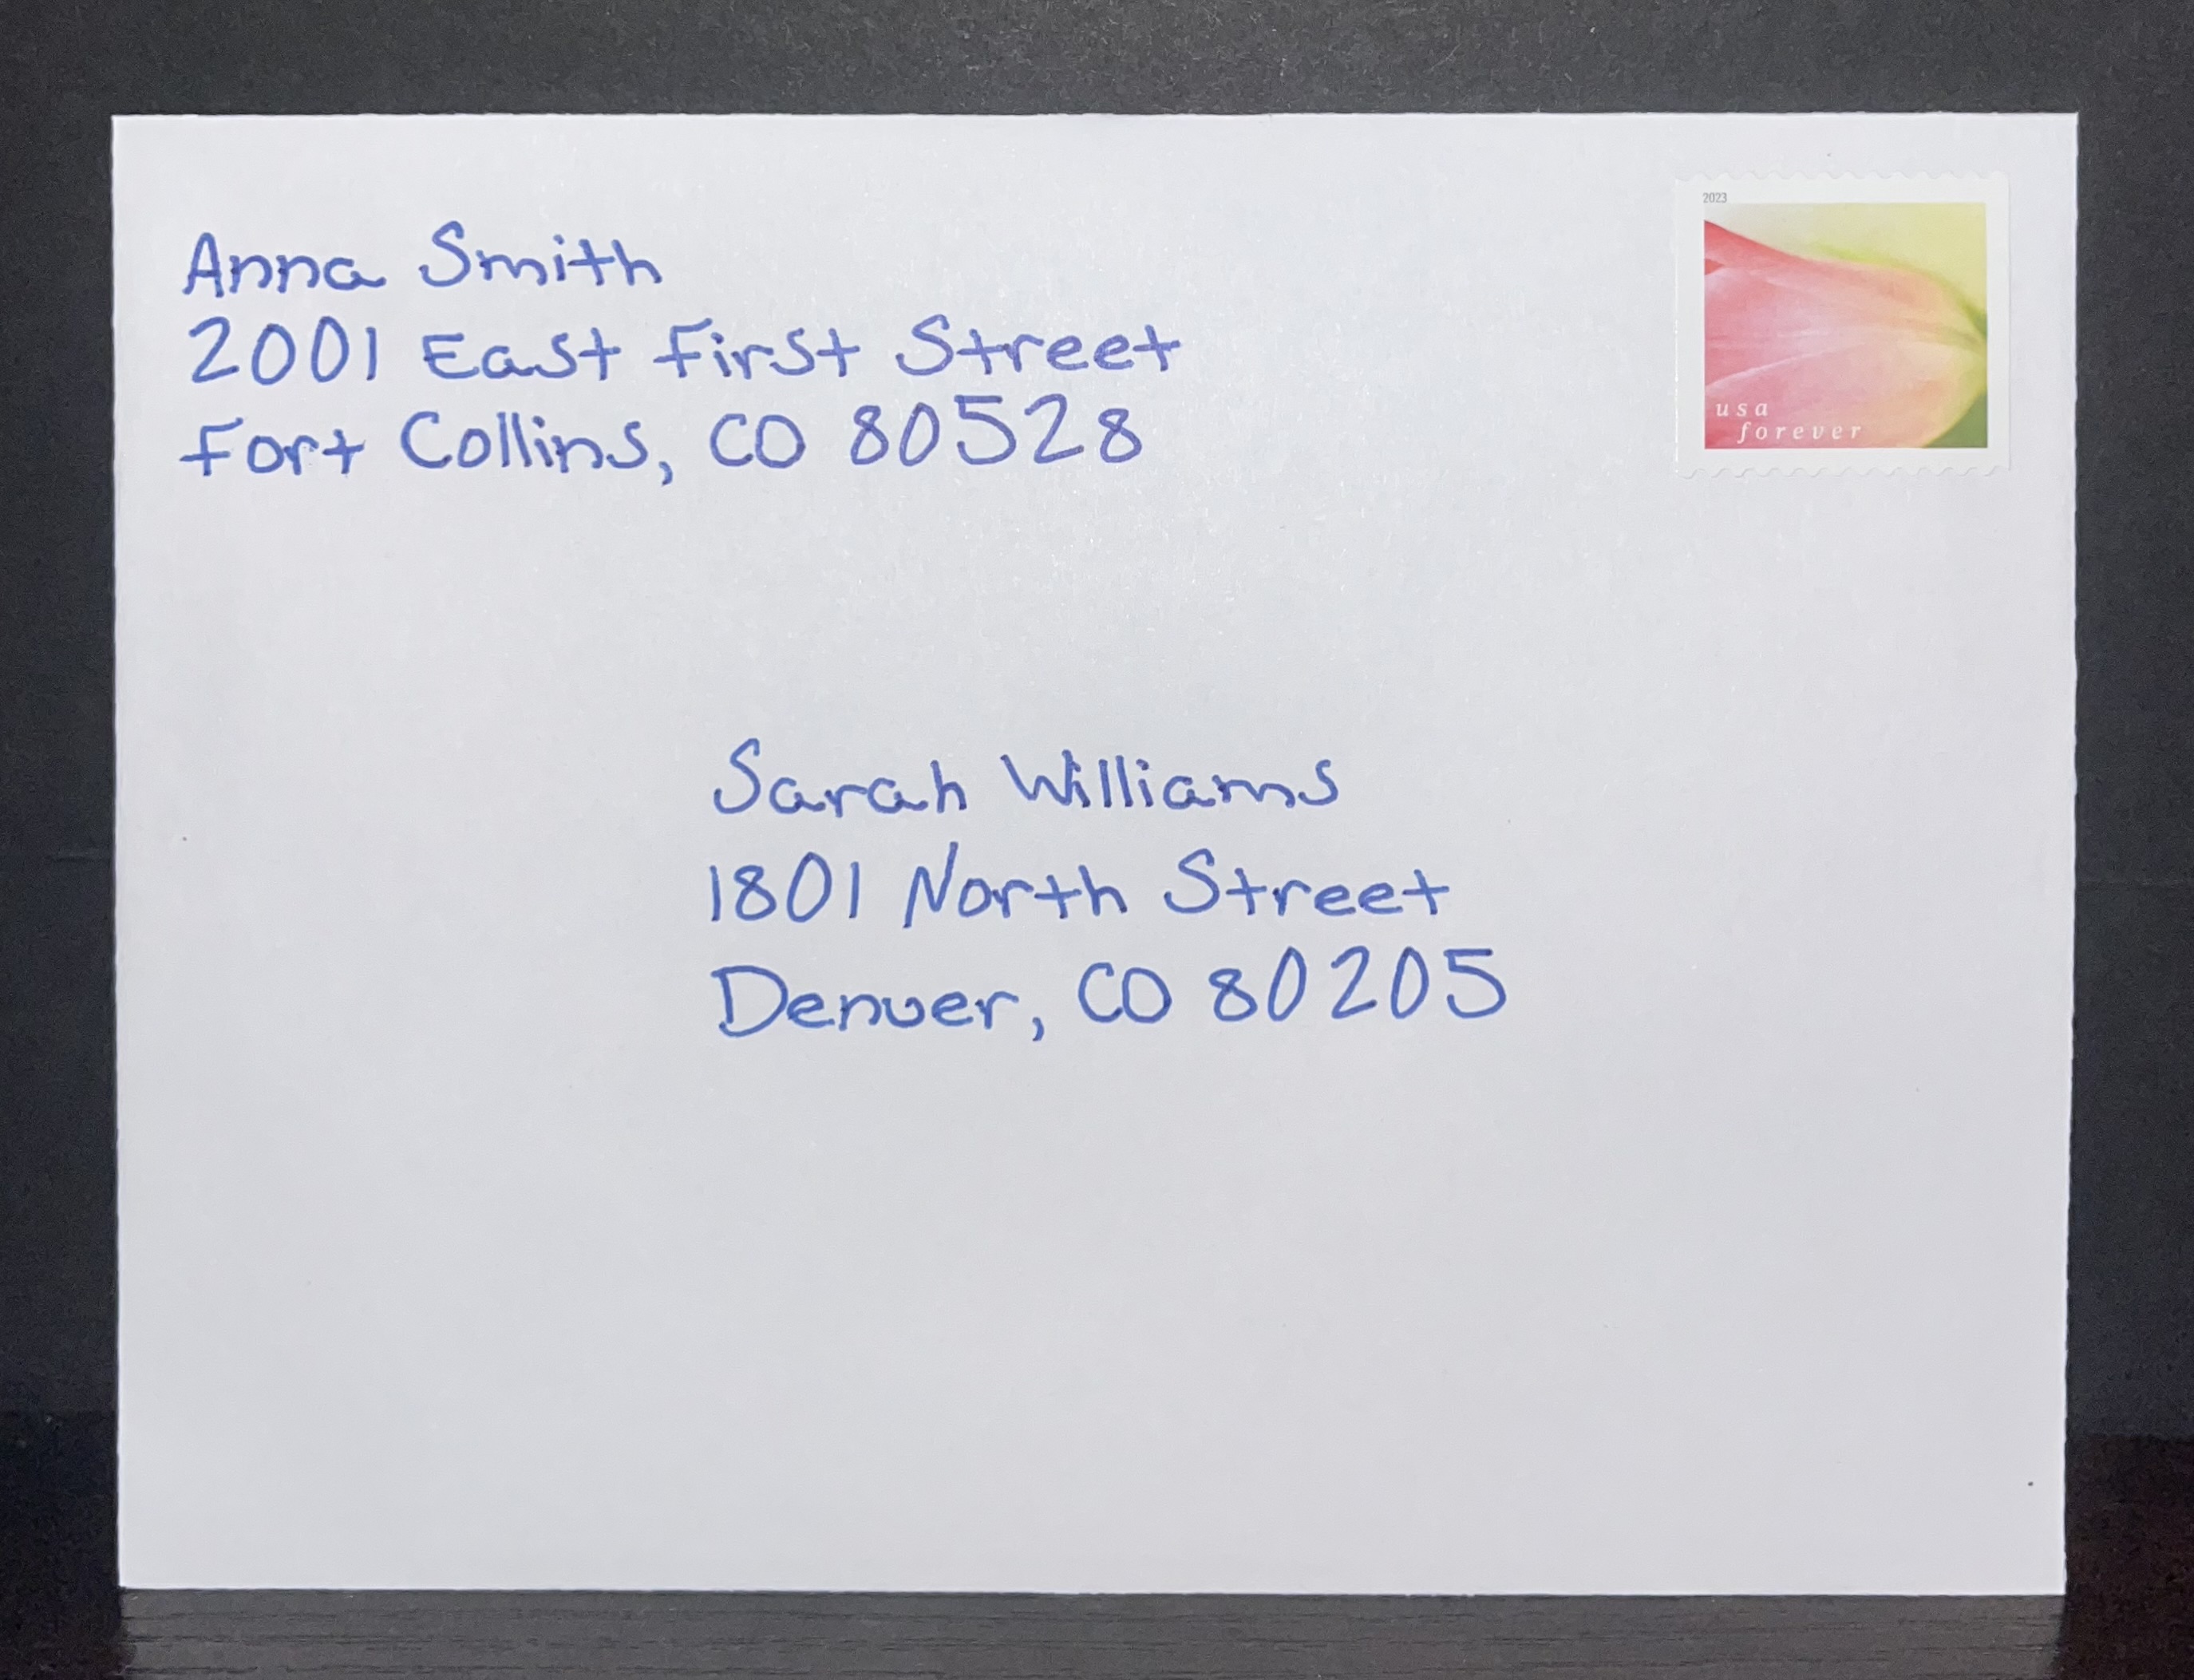 Anna Smith
2001 East First Street
Fort Collins, CO 80528
2023
usa
forever
Sarah Williams
1801 North Street
Denver, CO 80205